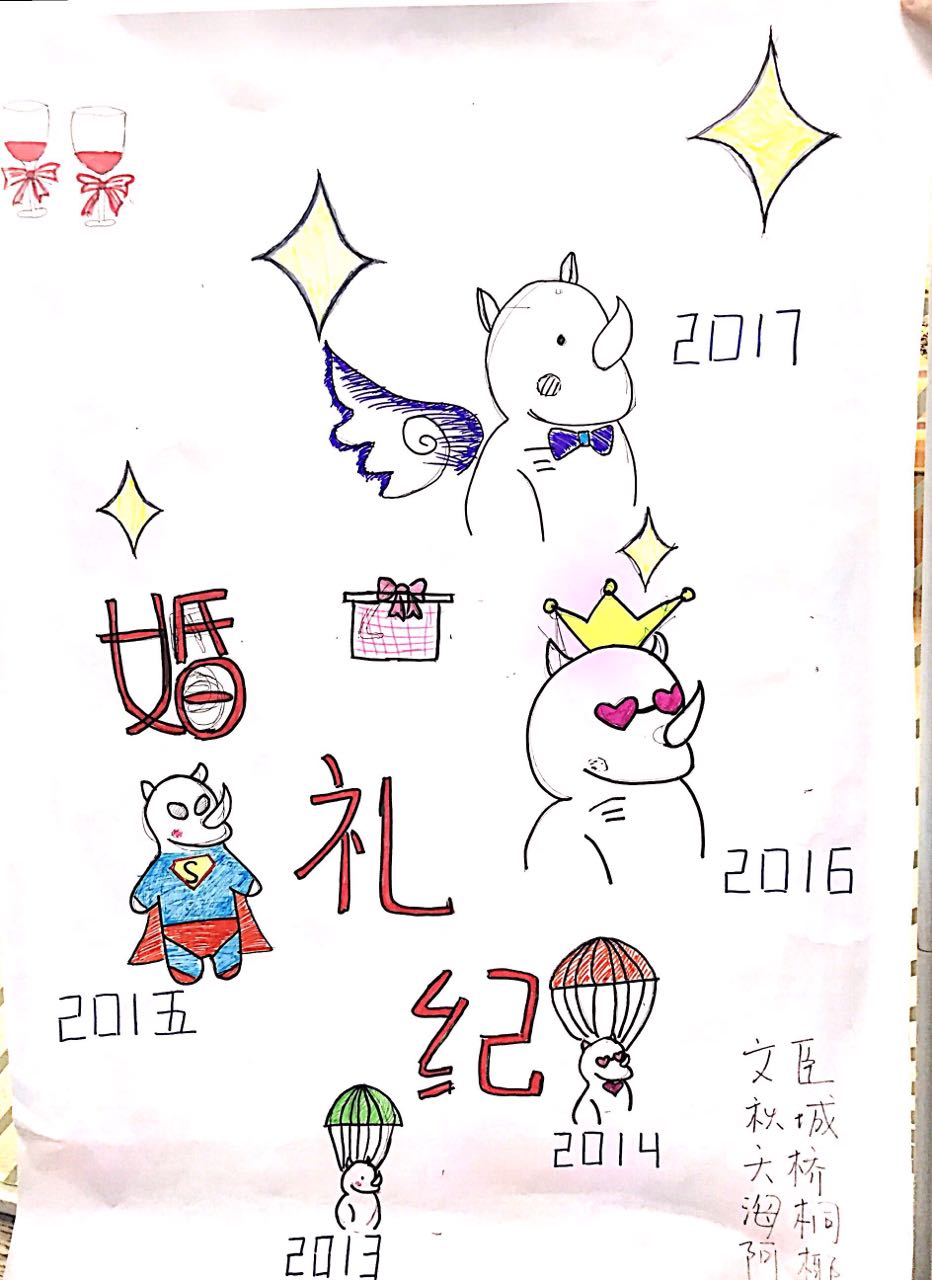 2017
婚
礼
纪
2016
S
201五
2014
2013
文臣
秋城
大桥
海桐
阿椰